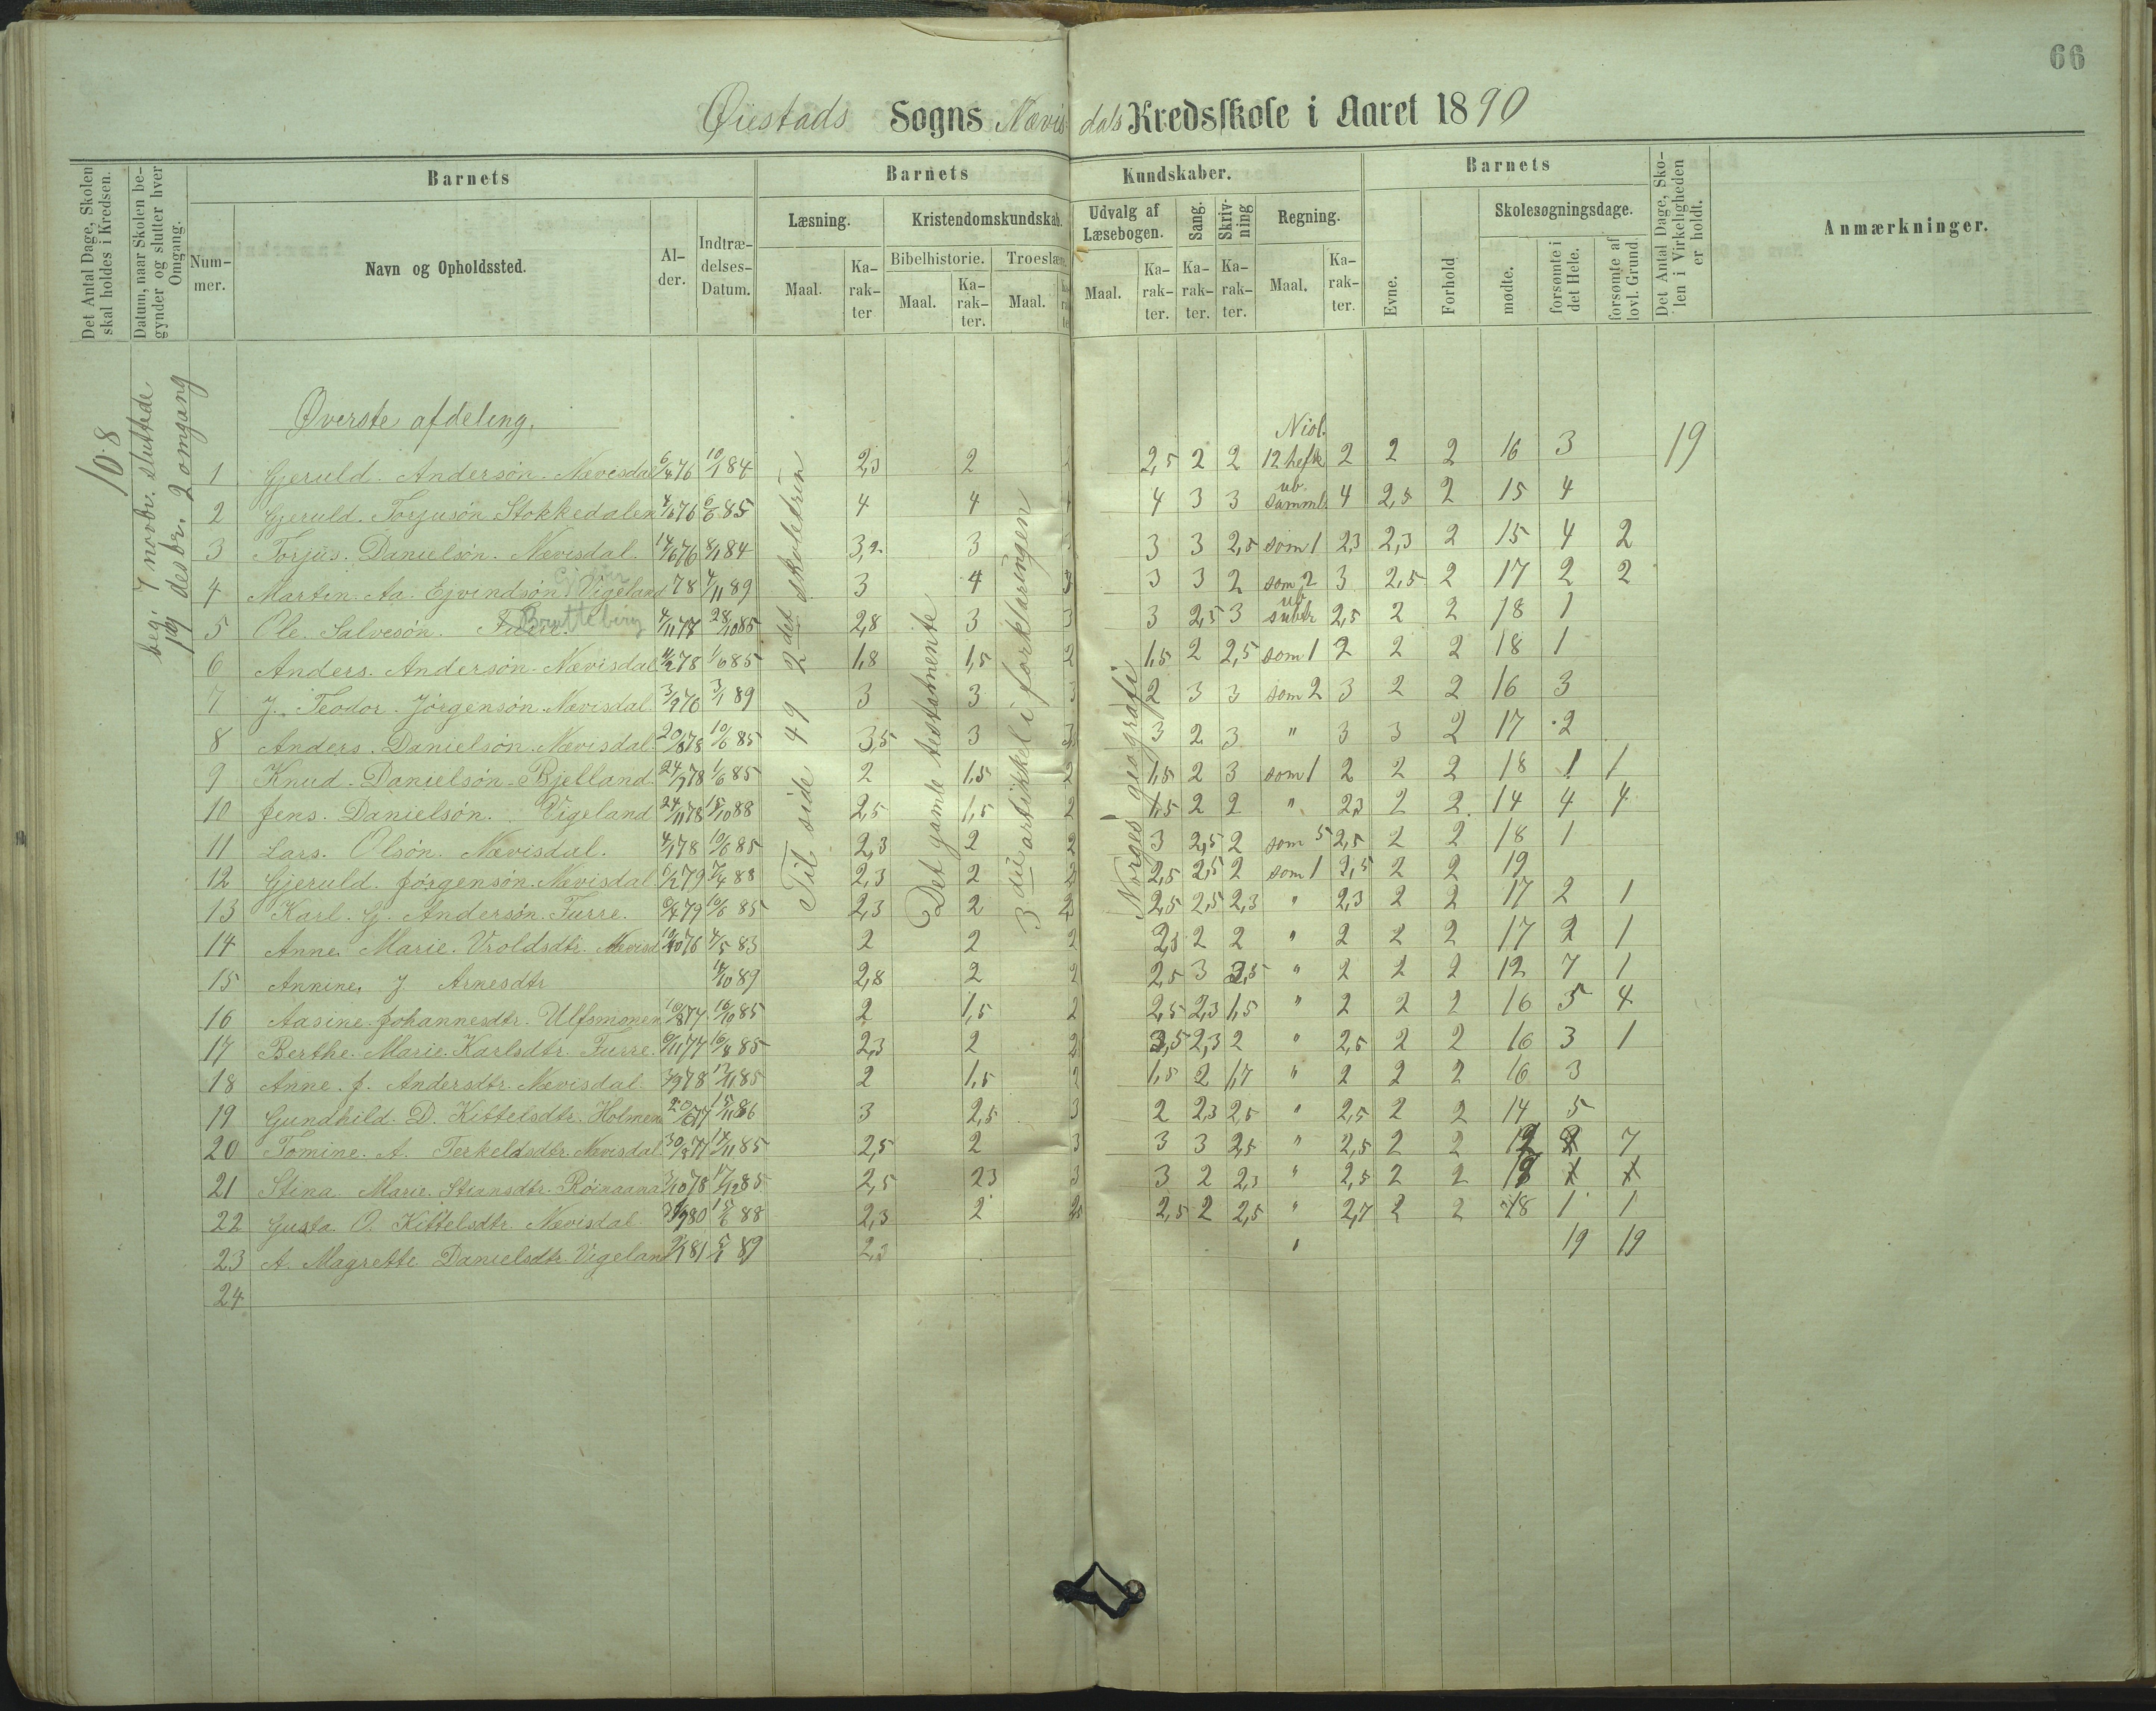 66
Øiestads Sogns Nævisdals Kredsskole i Aaret 1890
Det Antal Dage, Skolen skal holdes i Kredsen.
Datum, naar Skolen begynder og slutter hver Omgang.
Barnets
Barnets Kundskaber.
Barnets
Det Antal Dage, Skolen i Virkeligheden er holdt.
Anmærkninger.
Nummer.
Navn og Opholdssted.
Alder.
Indtrædelses-Datum.
Læsning.
Kristendomskundskab.
Udvalg af Læsebogen.
Sang.
Skrivning
Regning.
Evne.
Forhold
Skolesøgningsdage.
Maal.
Karakter
Bibelhistorie.
Troeslære.
Maal.
Karakter.
Maal.
Maal.
Karakter.
Karakter.
Karakter.
Maal.
Karakter.
mødte.
forsømte i det Hele.
forsømte af lovl. Grund.
108
beg. 7 novbr. sluttede
desbr. 2 omgang
Øverste afdeling.
Til side 49 2det skoletrin
Det gamle testamente
3die artikkel i forklaringen
Norges geografi
1 Gjeruld. Andersøn. Nævisdal 6/4 76 10/1 84 2,3 2 2,5 2 2 Niol. 12 hefte 2 2 2 16 3 19
2 Gjeruld. Torjusøn Stokkedalen 76 6/6 85 4 4 4 3 3 ub. samml. 4 2,5 2 15 4
3 Torjus. Danielsøn. Nævisdal. 14/6 76 8/1 84 3,2 3 3 3 2,5 som 1 2,3 2,3 2 15 4 2
4 Martin. Aa. Ejvindsøn Vigeland 78 4/11 89 3 4 3 3 3 2 som 2 3 2,5 2 17 2 2
5 Ole. Salvesøn. Furre. Bratteberg 4/11 77 28/10 85 2,8 3 3 3 2,5 3 ub. subtr 2,5 2 2 18 1
6 Anders. Andersøn. Nævisdal 4/2 78 1/6 85 1,8 1,5 2 1,5 2 2,5 som 1 2 2 2 18 1
7 J. Teodor. Jörgensön. Nævisdal. 3/9 76 3/1 89 3 3 3 2 3 3 som 2 3 2 2 16 3
8 Anders. Danielsön. Nævisdal. 20/6 78 10/6 85 3,5 3 3 3 2 3 " 3 3 2 17 2
9 Knud. Danielsön. Bjelland. 24/7 78 1/6 85 2 1,5 2 1,5 2 3 som 1 2 2 2 18 1 1
10 Jens. Danielsön. Vigeland 24/11 78 15/10 88 2,5 1,5 2 1,5 2 2 " 2,3 2 2 14 4 4
11 Lars. Olsön. Nævisdal. 4/1 78 10/6 85 2,3 2 2 3 2,5 2 som 5 2,5 2 2 18 1
12 Gjeruld. Jörgensön. Nævisdal 6/2 79 7/4 88 2,3 2 2 2,5 2,5 2 som 1 2,5 2 2 19
13 Karl. G. Andersön. Furre. 6/4 79 10/6 85 2,3 2 2 2,5 2,5 2,3 " 2,3 2 2 17 2 1
14 Anne. Marie. Vroldsdtr. Nævisd. 10/10 76 4/5 83 2 2 2 2,3 2 2 " 2 2 2 17 2 1
15 Annine. J. Arnesdtr 14/10 89 2,8 2 2 2,5 3 " 2 2 2 12 7 1
16 Aasine. Johannesdtr. Ulfsmonen 10/8 77 16/10 85 2 1,5 2 2,5 2,3 1,5 " 2 2 2 16 5 4
17 Berthe. Marie. Karlsdtr. Furre. 6/11 77 16/8 85 2,3 2 2 3,5 2,3 2 " 2,5 2 2 16 3 1
18 Anne. J. Andersdtr. Nævisdal. 3/9 78 17/11 85 2 1,5 2 1,5 2 1,7 " 2 2 2 16 3
19 Gundhild. D. Kittelsdtr. Holmen 20/6 77 15/11 86 3 2,5 3 2 2,3 2,5 " 2,5 2 2 14 5
20 Tomine. A. Terkeldsdtr. Nævisdal. 30/3 77 14/11 85 2,5 2 3 3 3 2,5 " 2,5 2 2 12 7
21 Stina. Marie. Steansdtr. Röinaana 78 17/12 85 2,5 23 3 3 2 2,3 " 2,5 2 2
22 Gusta. O. Kittelsdtr. Nævisdal. 80 15/6 88 2,3 2 2,5 2 2,5 " 2,7 2 2 18 1 1
23 A. Magrette. Danielsdtr. Vigeland 81 5/1 89 2,3 " 19 19
24